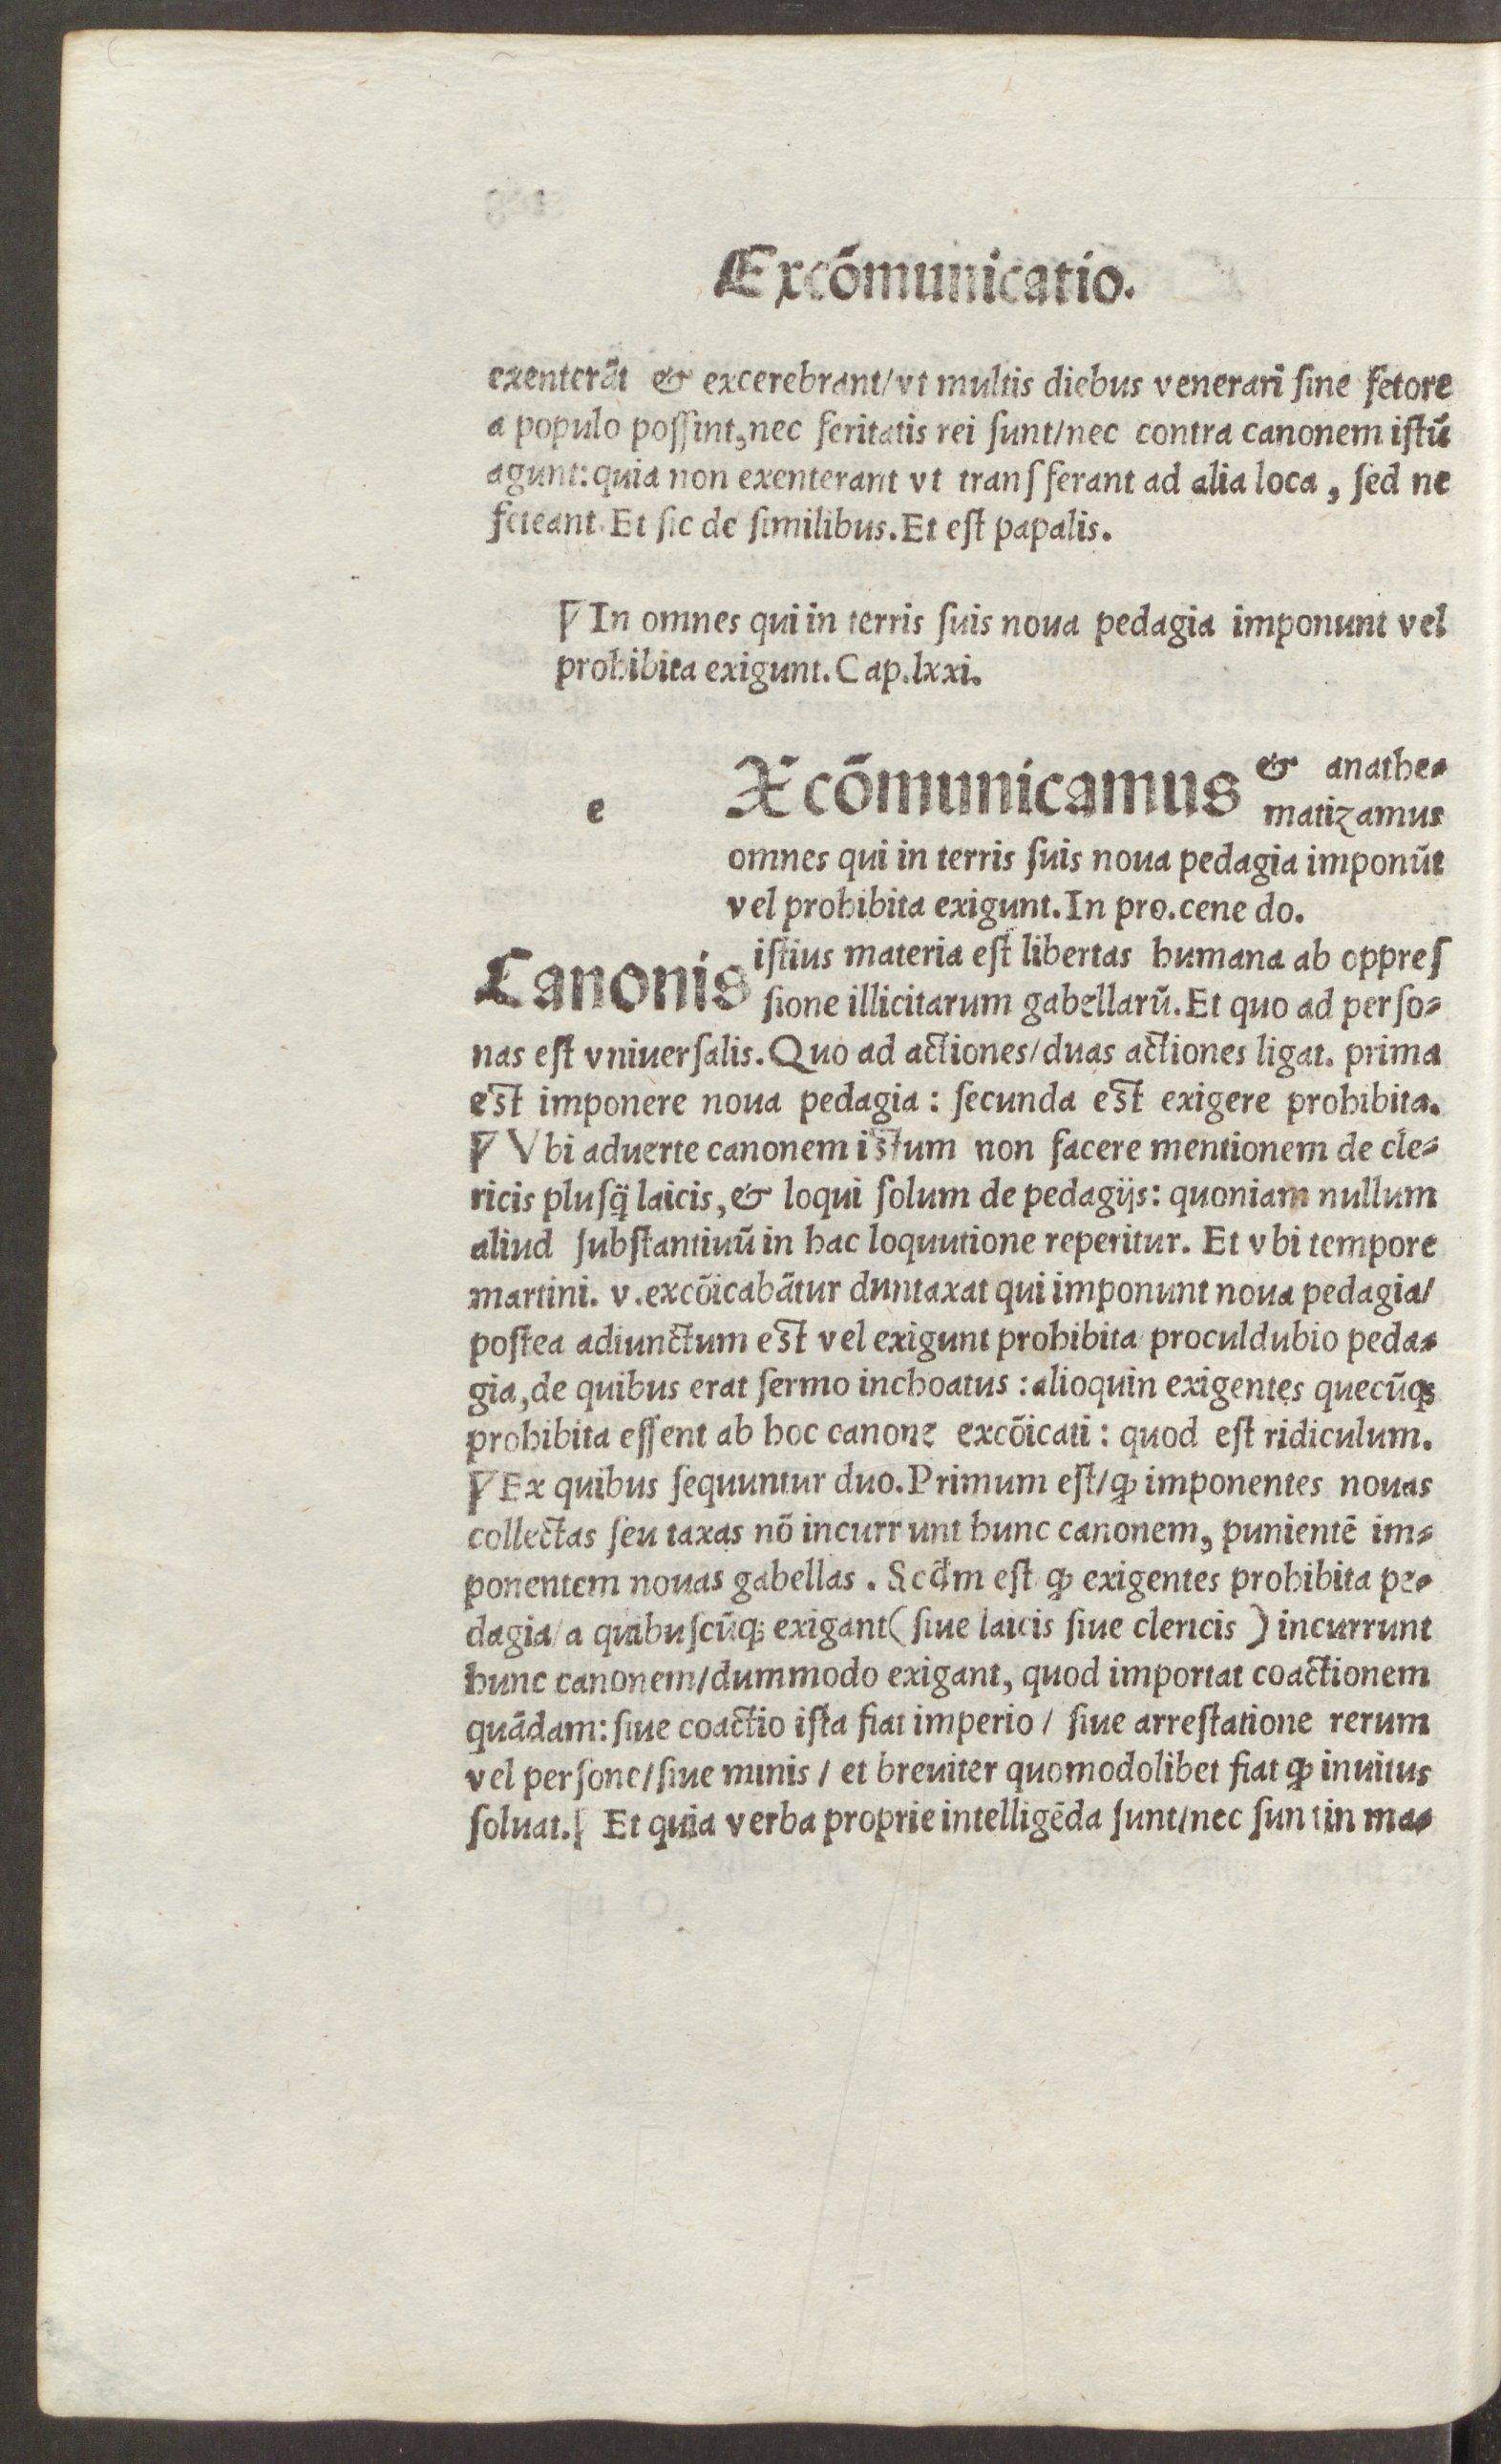 Excōmunicatio.
exenterāt & excerebrant/vt multis diebus venerari ſine fetore
a populo poſſint, nec feritatis rei ſunt/nec contra canonem iſtū
agunt: quia non exenterant vt tranſferant ad alia loca, ſed ne
feteant. Et ſic de ſimilibus. Et eſt papalis.
¶ In omnes qui in terris ſuis noua pedagia imponunt vel
prohibita exigunt. Cap. lxxi.
e Xcōmunicamus & anathe-
matizamus
omnes qui in terris ſuis noua pedagia imponūt
vel prohibita exigunt. In pro. cene do.
Canonis iſtius materia eſt libertas humana ab oppreſ
ſione illicitarum gabellarū. Et quo ad perſo-
nas eſt vniuerſalis. Quo ad actiones/duas actiones ligat. prima
est imponere noua pedagia: ſecunda est exigere prohibita.
¶ Vbi aduerte canonem istum non facere mentionem de cle-
ricis pluſq̄ laicis, & loqui ſolum de pedagijs: quoniam nullum
aliud ſubſtantiuū in hac loquutione reperitur. Et vbi tempore
martini. v. excōicabātur duntaxat qui imponunt noua pedagia/
poſtea adiunctum est vel exigunt prohibita proculdubio peda-
gia, de quibus erat ſermo inchoatus: alioquin exigentes quecūqꝫ
prohibita eſſent ab hoc canone excōicati: quod eſt ridiculum.
¶ Ex quibus ſequuntur duo. Primum eſt/ꝙ imponentes nouas
collectas ſeu taxas nō incurrunt hunc canonem, punientē im-
ponentem nouas gabellas. Scd̄m eſt ꝙ exigentes prohibita pe-
dagia/a quibuſcūqꝫ exigant (ſiue laicis ſiue clericis) incurrunt
hunc canonem/dummodo exigant, quod importat coactionem
quādam: ſiue coactio iſta fiat imperio/ ſiue arreſtatione rerum
vel perſone/ſiue minis/ et breuiter quomodolibet fiat ꝙ inuitus
ſoluat. ¶ Et quia verba proprie intelligēda ſunt/nec ſunt in ma-